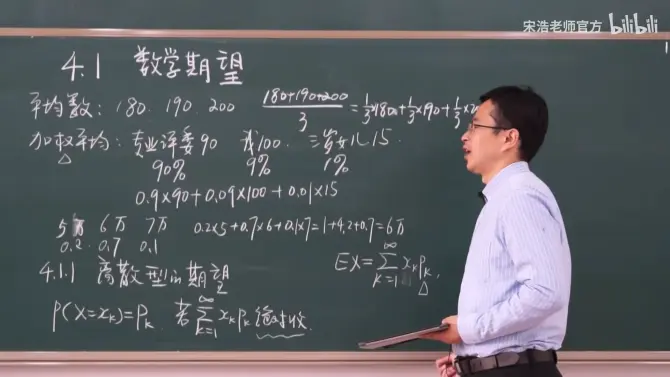 宋浩老师官方 bilibili
4.1 数学期望
平均数: 180. 190. 200 (180+190+200)/3 = 1/3×180+1/3×190+1/3×2
加权平均: 专业评委90 我100. 三岁女儿15.
90% 9% 1%
0.9×90+0.09×100+0.01×15
5万 6万 7万 0.2×5+0.7×6+0.1×7=1+4.2+0.7=6万
0.2 0.7 0.1
4.1.1 离散型的期望 EX=∑_{k=1}^{∞} x_k P_k,
P(X=x_k)=P_k 若∑_{k=1}^{∞} x_k P_k 绝对收